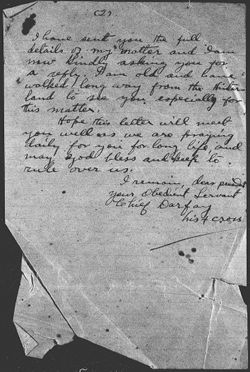 (2)
I have sent you the full
details of my matter and I am
now kindly asking you for
a reply. I am old and have
walked long way from the hinter
land to see you especially for
this matter.
Hope this letter will meet
you well as we are praying
daily for you for long life, and
may God bless and keep to
rule over us.
I remain, dear
your Obedient Servant
Chief Darfay
his x cross